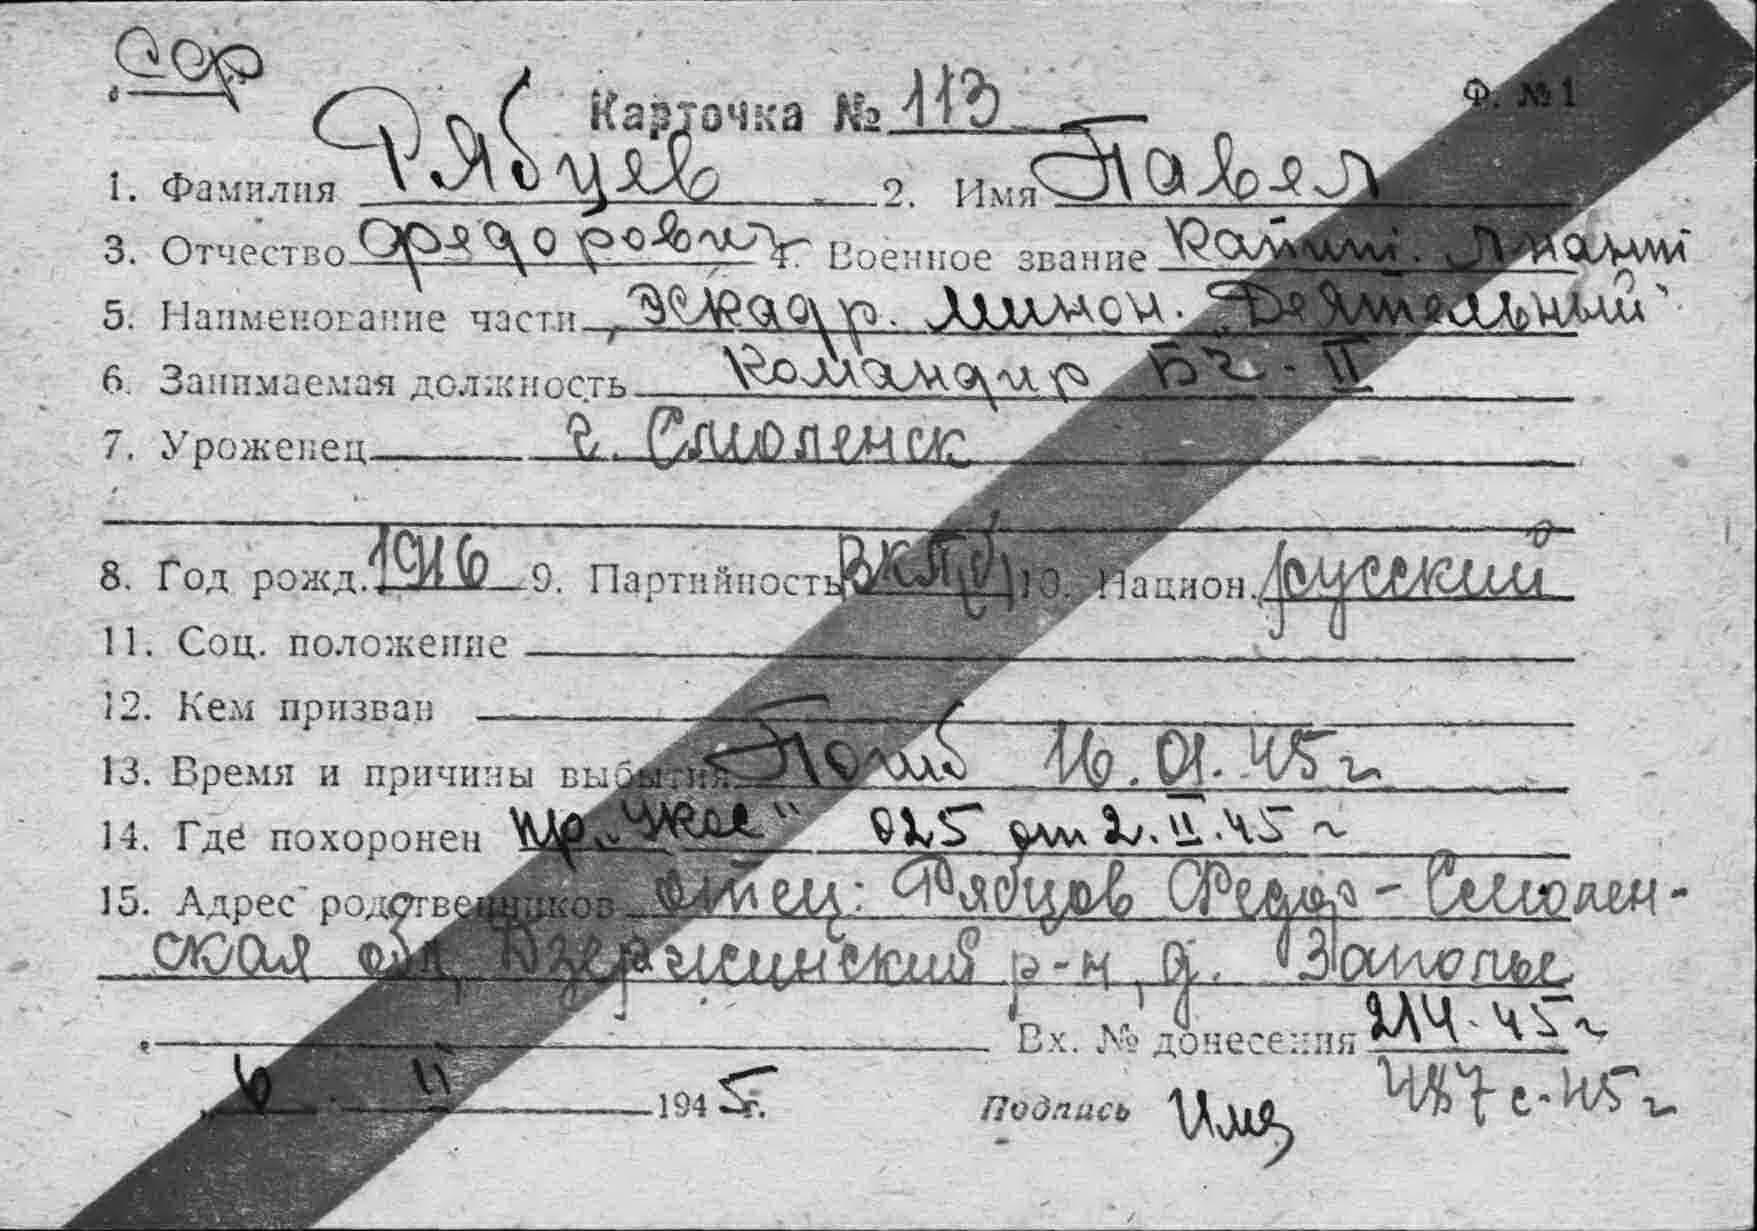 СФ
Карточка № 113 Ф. № 1
1. Фамилия Рябцев 2. Имя Павел
3. Отчество Федорович 4. Военное звание Капит. л-нант
5. Наименование части Эскадр. минон. "Деятельный"
6. Занимаемая должность Командир БЧ-II
7. Уроженец г. Смоленск
8. Год рожд. 1916 9. Партийность ВКП(б) 10. Национ. русский
11. Соц. положение
12. Кем призван
13. Время и причины выбытия Погиб 16.01.45 г
14. Где похоронен пр. 025 от 2.II.45 г
15. Адрес родственников отец: Рябцов Федор - Смолен-
ская обл, Дзержинский р-н, д. Заполье
Вх. № донесения 214.45 г
487 с.45 г
6 II 1945 г. Подпись